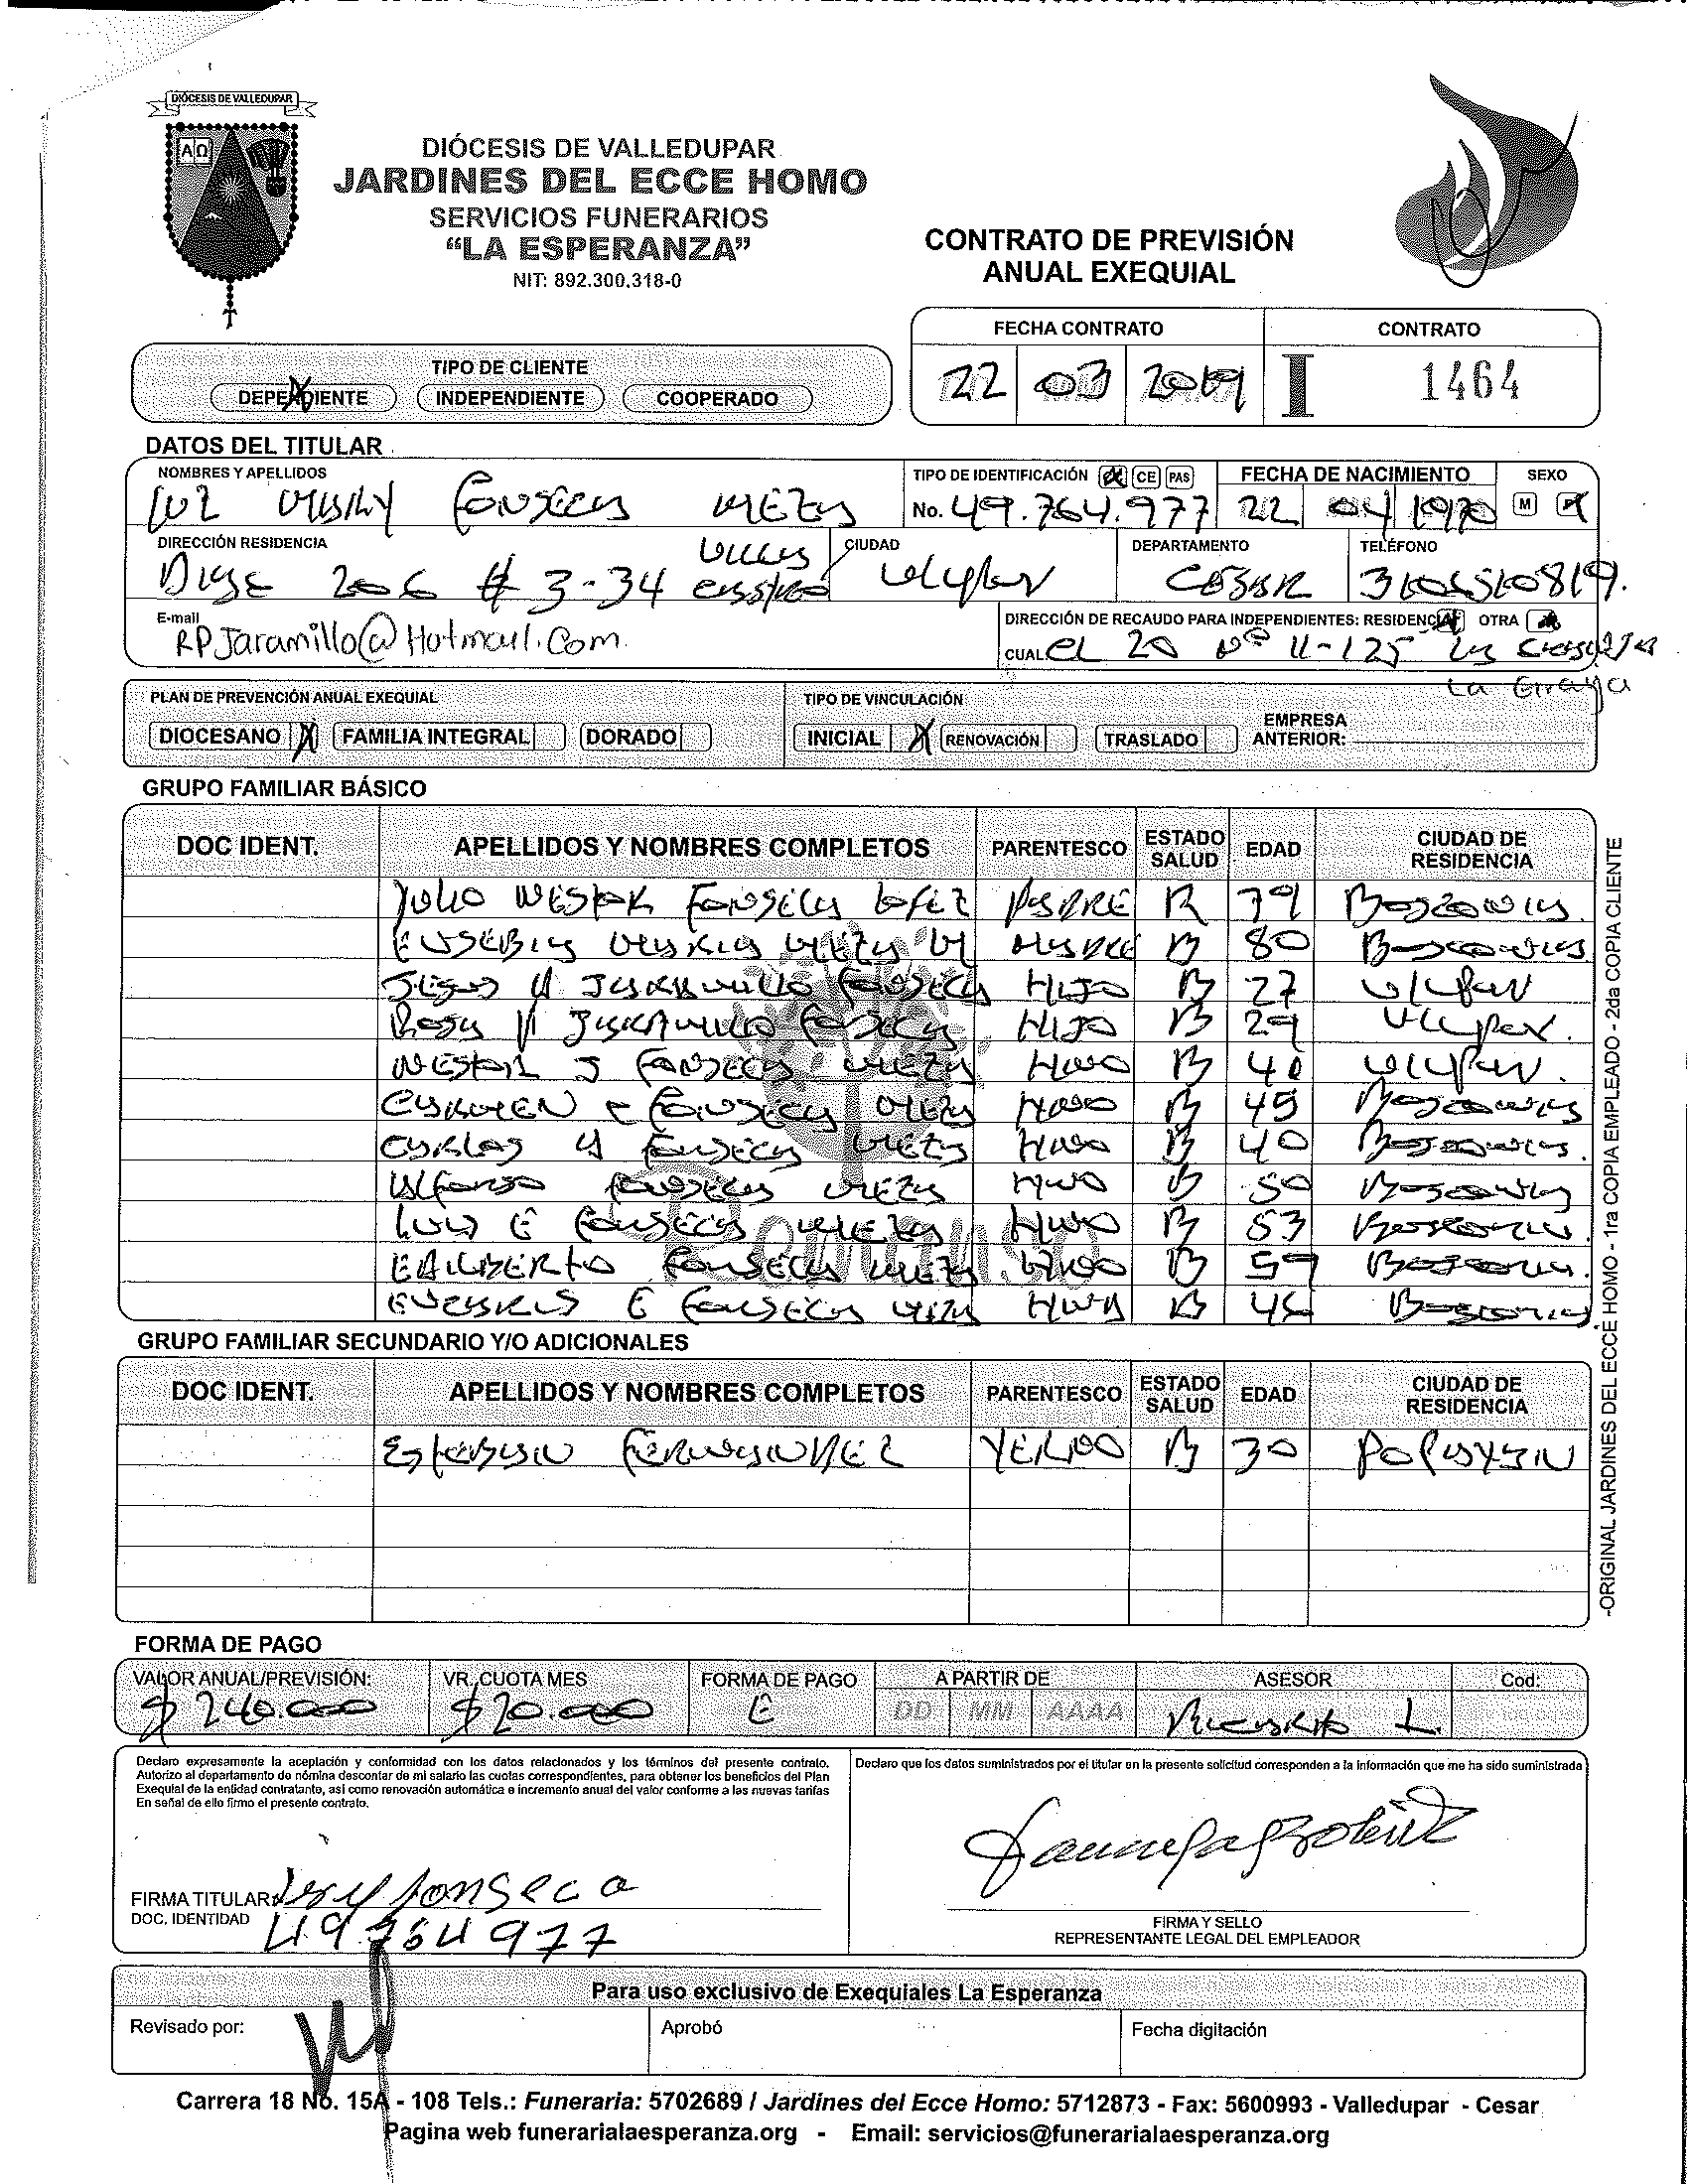 DIÓCESIS DE VALLEDUPAR
AΩ
DIÓCESIS DE VALLEDUPAR
JARDINES DEL ECCE HOMO
SERVICIOS FUNERARIOS
“LA ESPERANZA”
NIT: 892.300.318-0
CONTRATO DE PREVISIÓN
ANUAL EXEQUIAL
FECHA CONTRATO CONTRATO
22 03 2019 I 1464
TIPO DE CLIENTE
DEPENDIENTE INDEPENDIENTE COOPERADO
DATOS DEL TITULAR
NOMBRES Y APELLIDOS TIPO DE IDENTIFICACIÓN CE PAS FECHA DE NACIMIENTO SEXO
Luz Mary Fonseca Meza No. 49.764.977 22 04 1970 M
DIRECCIÓN RESIDENCIA CIUDAD DEPARTAMENTO TELÉFONO
# 3-34 V/upar CESAR 3106510819.
E-mail DIRECCIÓN DE RECAUDO PARA INDEPENDIENTES: RESIDENCIA OTRA
RPJaramillo@Hotmail.Com. CUAL 20 Nº 11-125
PLAN DE PREVENCIÓN ANUAL EXEQUIAL TIPO DE VINCULACIÓN
DIOCESANO X FAMILIA INTEGRAL DORADO INICIAL X RENOVACIÓN TRASLADO EMPRESA ANTERIOR:
GRUPO FAMILIAR BÁSICO
DOC IDENT. APELLIDOS Y NOMBRES COMPLETOS PARENTESCO ESTADO SALUD EDAD CIUDAD DE RESIDENCIA
Julio Nestor Fonseca Lopez PADRE 79 Bosconia.
EUSEBIA MARIA MEZA MADRE B 80 Bosconia
JARAMILLO Fonseca HIJO B 27 V/upar
Rosa JARAMILLO Fonseca HIJO B 29 V/upar.
NESTOR J Fonseca MEZA HNO B V/upar.
CARMEN Fonseca MEZA HNO B 45 Bosconia
CARLOS A Fonseca MEZA HNO B 40 Bosconia.
Alfonso Fonseca MEZA HNO B 50 Bosconia
LUIS E Fonseca MEZA HNO B 53 Bosconia.
Fonseca MEZA HNO B 59 Bosconia.
E Fonseca MEZA HNA B Bosconia
GRUPO FAMILIAR SECUNDARIO Y/O ADICIONALES
DOC IDENT. APELLIDOS Y NOMBRES COMPLETOS PARENTESCO ESTADO SALUD EDAD CIUDAD DE RESIDENCIA
Esteban FERNANDEZ YERNO B 30 POPAYAN
FORMA DE PAGO
VALOR ANUAL/PREVISIÓN: VR. CUOTA MES FORMA DE PAGO A PARTIR DE ASESOR Cod:
$ 240.000 $ 20.000 E DD MM AAAA Ricardo L.
Declaro expresamente la aceptación y conformidad con los datos relacionados y los términos del presente contrato.
Autorizo al departamento de nómina descontar de mi salario las cuotas correspondientes, para obtener los beneficios del Plan
Exequial de la entidad contratante, así como renovación automática e incremento anual del valor conforme a las nuevas tarifas
En señal de ello firmo el presente contrato.
Declaro que los datos suministrados por el titular en la presente solicitud corresponden a la información que me ha sido suministrada
FIRMA TITULAR Fonseca
DOC. IDENTIDAD 49764977
FIRMA Y SELLO
REPRESENTANTE LEGAL DEL EMPLEADOR
Para uso exclusivo de Exequiales La Esperanza
Revisado por: Aprobó Fecha digitación
Carrera 18 No. 15A - 108 Tels.: Funeraria: 5702689 / Jardines del Ecce Homo: 5712873 - Fax: 5600993 - Valledupar - Cesar
Pagina web funerarialaesperanza.org - Email: servicios@funerarialaesperanza.org
-ORIGINAL JARDINES DEL ECCE HOMO - 1ra COPIA EMPLEADO - 2da COPIA CLIENTE